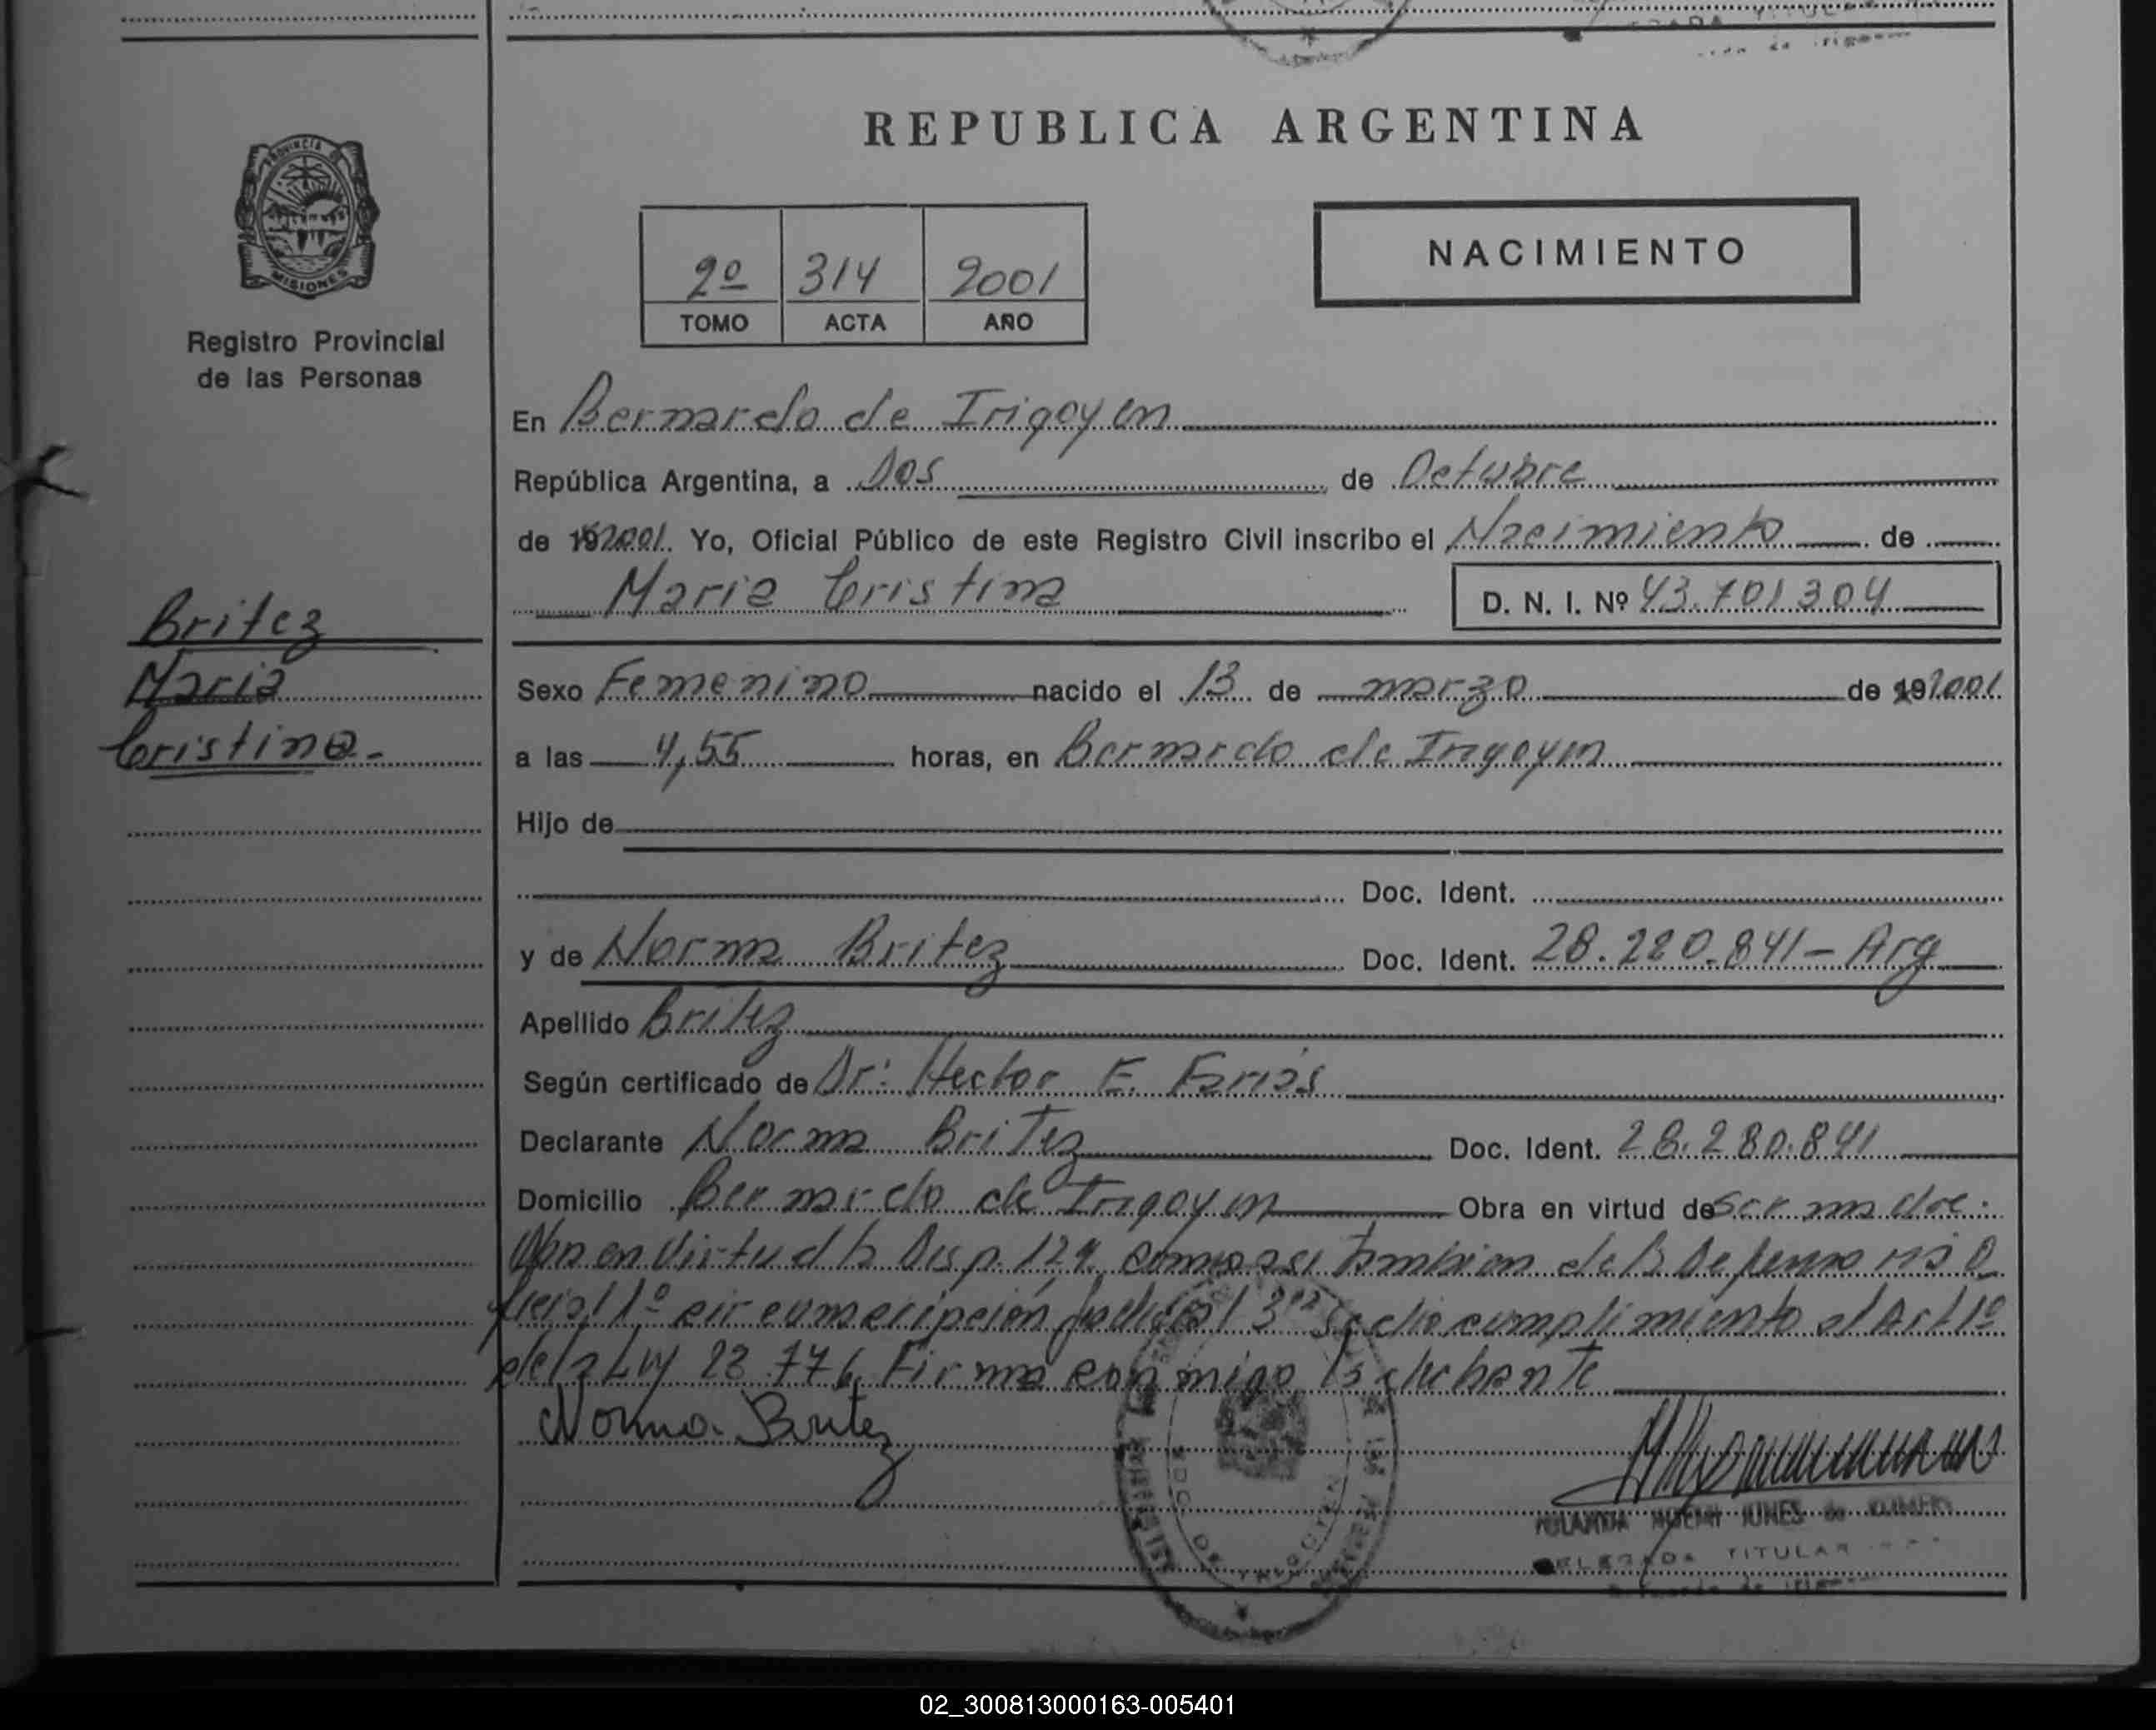 REPUBLICA ARGENTINA
PROVINCIA DE
MISIONES
Registro Provincial
de las Personas
2º 314 2001
TOMO ACTA AÑO
NACIMIENTO
En Bernardo de Irigoyen
República Argentina, a Dos de Octubre
de 192001. Yo, Oficial Público de este Registro Civil inscribo el Nacimiento de
Maria Cristina D. N. I. Nº 43.701304
Britez
Maria
Cristina.-
Sexo Femenino nacido el 13 de marzo de 192001
a las 4,55 horas, en Bernardo de Irigoyen
Hijo de
Doc. Ident.
y de Norma Britez Doc. Ident. 28.280.841- Arg
Apellido Britez
Según certificado de Dr: Hector E. Farias
Declarante Norma Britez Doc. Ident. 28.280.841
Domicilio Bernardo de Irigoyen Obra en virtud de ser madre.
en Virtud la Disp. como asi tambien de la Defensoria O
ficial 1º circunscripción Judicial 3ra cumplimiento al Art 1º
de la Ley 23.776 Firma conmigo la
Norma Britez
NOEMI JUNES de
DELEGADA TITULAR
02_300813000163-005401